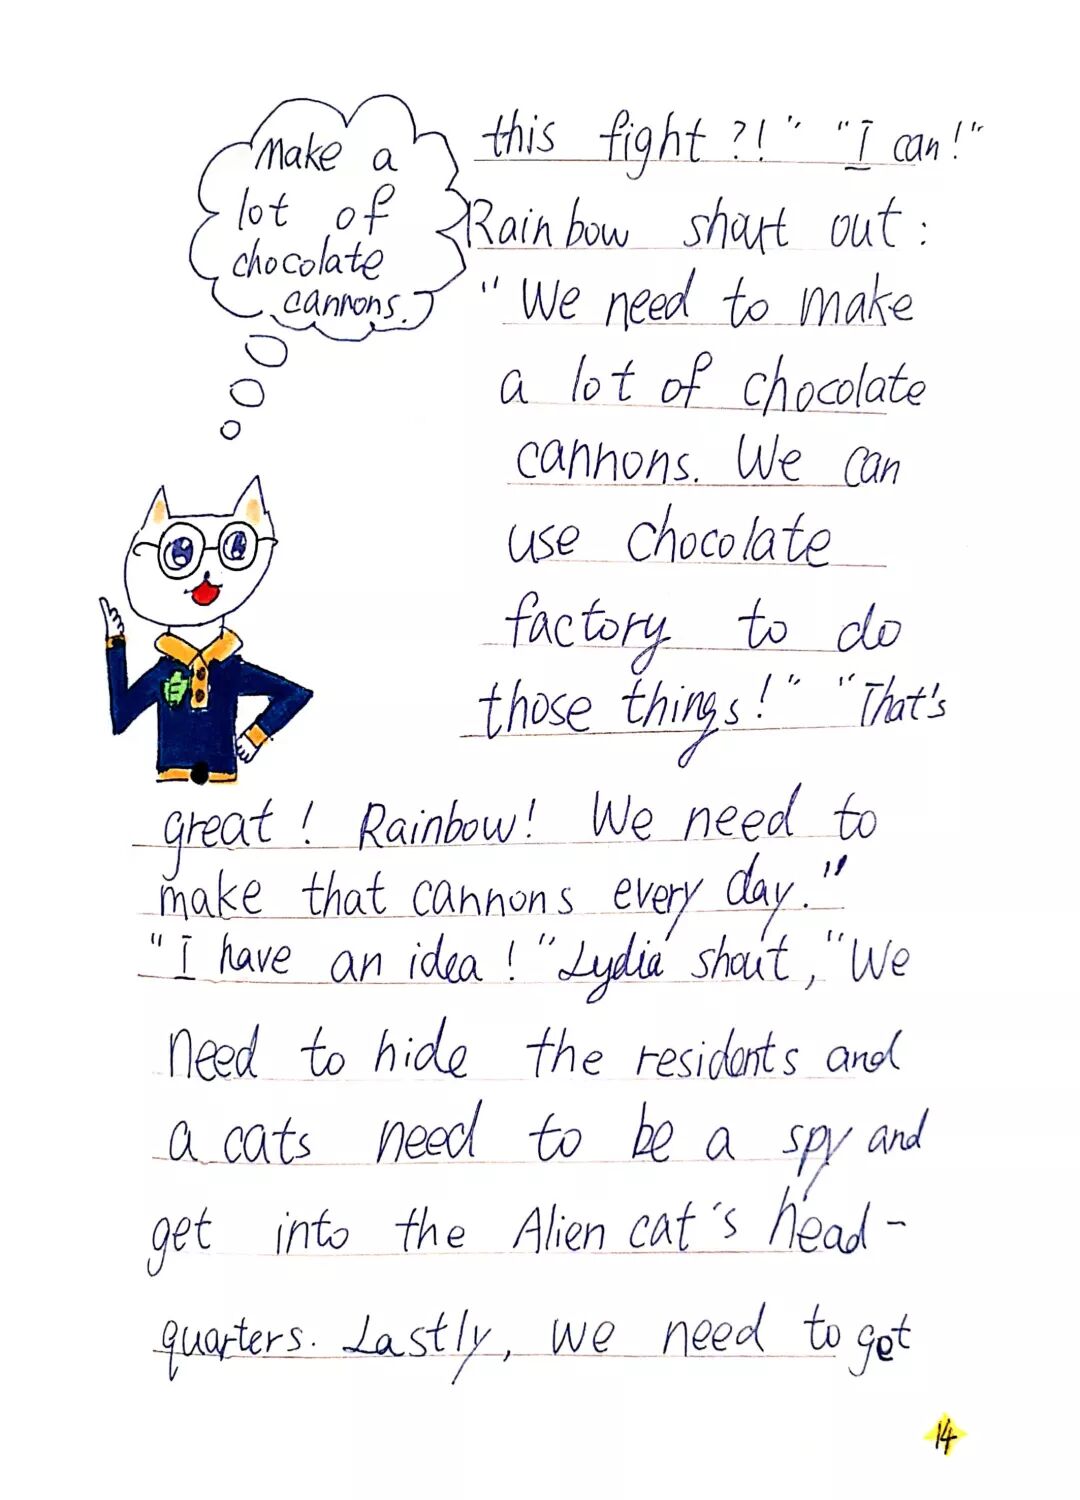 Make a
lot of
chocolate
cannons.
this fight?!" "I can!"
Rainbow shout out:
"We need to make
a lot of chocolate
cannons. We can
use chocolate
factory to do
those things!" "That's
great! Rainbow! We need to
make that cannons every day."
"I have an idea!" Lydia shout, "We
need to hide the residents and
a cats need to be a spy and
get into the Alien cat's head-
quarters. Lastly, we need to get
14